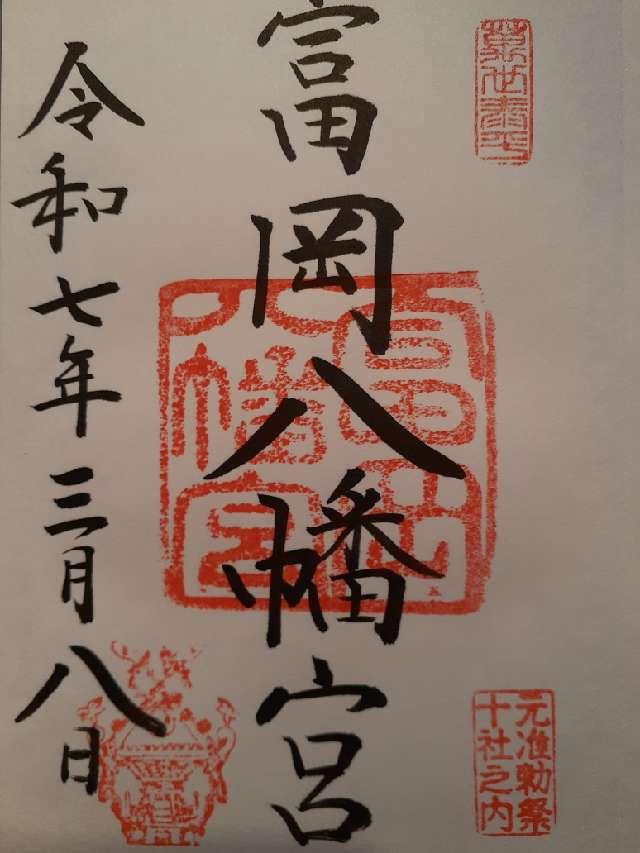 萬世泰平
元准勅祭
十社之内
富岡八幡宮
富岡
八幡宮
令和七年三月八日